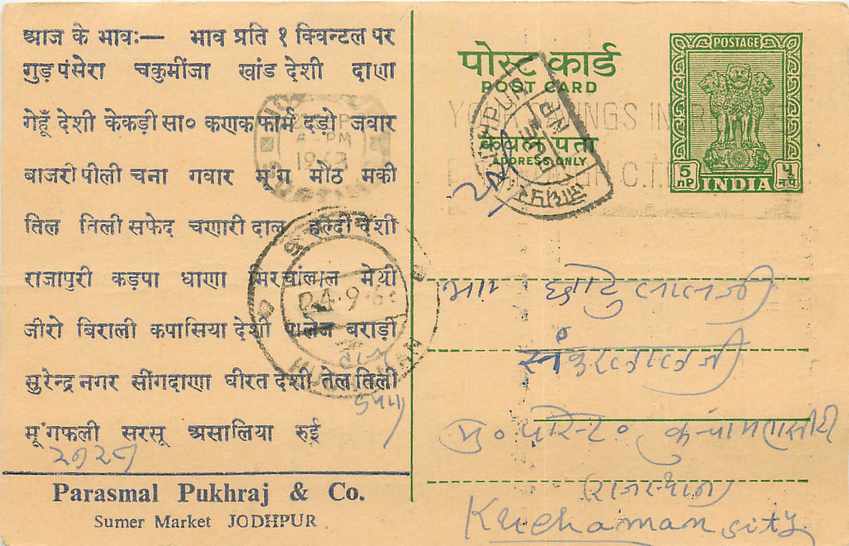 आज के भावः— भाव प्रति १ क्विन्टल पर
गुड़ पंसेरा चकुमींजा खांड देशी दाणा
गेहूँ देशी केकड़ी सा० कणक फार्म दड़ो जवार
बाजरी पीली चना गवार मूंग मोठ मकी
तिल तिली सफेद चणारी दाल हल्दी देशी
राजापुरी कड़पा धाणा मिरचांलाल मेथी
जीरो बिराली कपासिया देशी पालेज बराड़ी
सुरेन्द्र नगर सींगदाणा घीरत देशी तेल तिली
मूंगफली सरसू असालिया रुई
Parasmal Pukhraj & Co.
Sumer Market JODHPUR
पोस्ट कार्ड
POST CARD
केवल पता
ADDRESS ONLY
POSTAGE
5 nP INDIA ५ न.पै.
1963
24.9.63
छोटुलालजी
शंकरलालजी
मु० पोस्ट०
राजस्थान
Kuchaman city